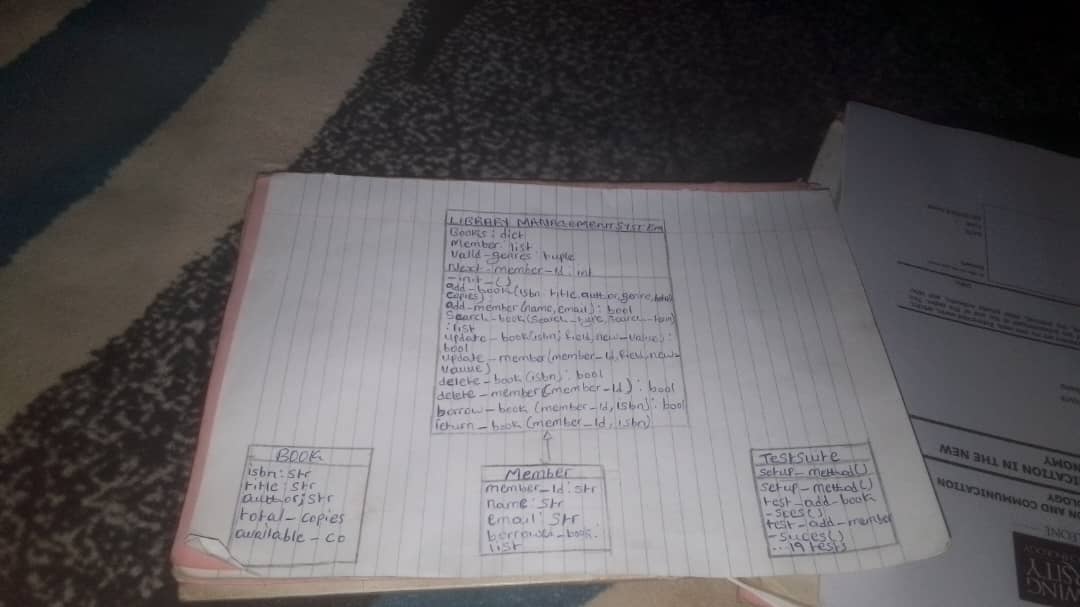 LIBRARY MANAGEMENT SYSTEM
Books : dict
Member : list
Valid-genres : tuple
Next-member-Id : int
-init-()
add-book(isbn title, author, genre, total
copies)
add-member(name, email) : bool
Search-book(Search-type, Search-term)
: list
update-book(isbn, field, new-value) :
bool
update-member(member-Id, field, new-
value)
delete-book(isbn) : bool
delete-member(member-Id) : bool
borrow-book (member-Id, isbn) : bool
return-book (member-Id, isbn)
BOOK
isbn : str
title : str
author : str
total-copies
available-co
Member
member-Id : str
name : str
email : str
borrowed-book :
list
TestSuite
setup-method()
setup-method()
test-add-book
-sces()
test-add-member
-suces()
...19 tests
ICATION IN THE NEW
ON AND COMMUNICATION
OLOGY
EONE
WING
RSITY